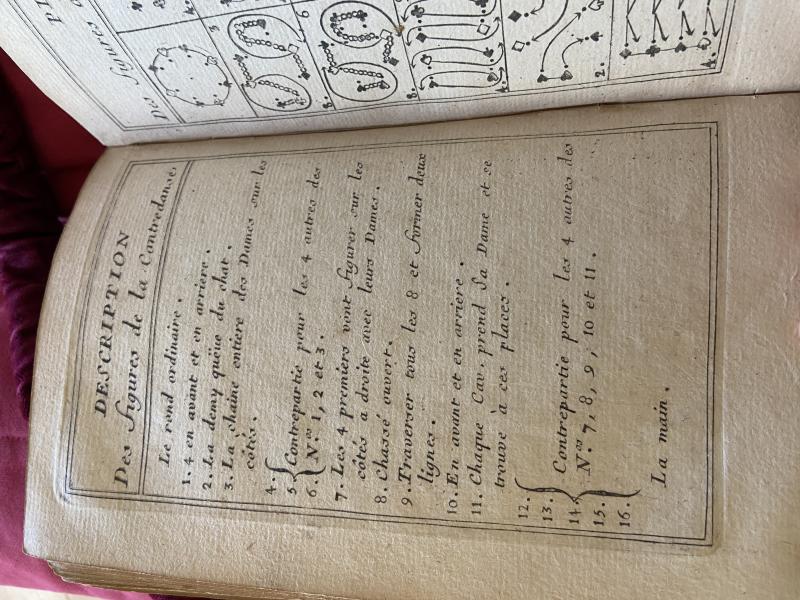 DESCRIPTION
Des figures de la Contredanse,
Le rond ordinaire.
1. 4 en avant et en arriere.
2. La demy queüe du chat.
3. La chaine entiere des Dames sur les
côtés.
4.
5. Contrepartie pour les 4 autres des
6. Nos. 1, 2 et 3.
7. Les 4 premiers vont figurer sur les
côtés a droite avec leurs Dames.
8. Chassé ouvert.
9. Traverser tous les 8 et former deux
lignes.
10. En avant et en arriere.
11. Chaque Cav. prend sa Dame et se
trouve à ces places.
12.
13. Contrepartie pour les 4 autres des
14. Nos. 7, 8, 9, 10 et 11.
15.
16.
La main.
Des figures